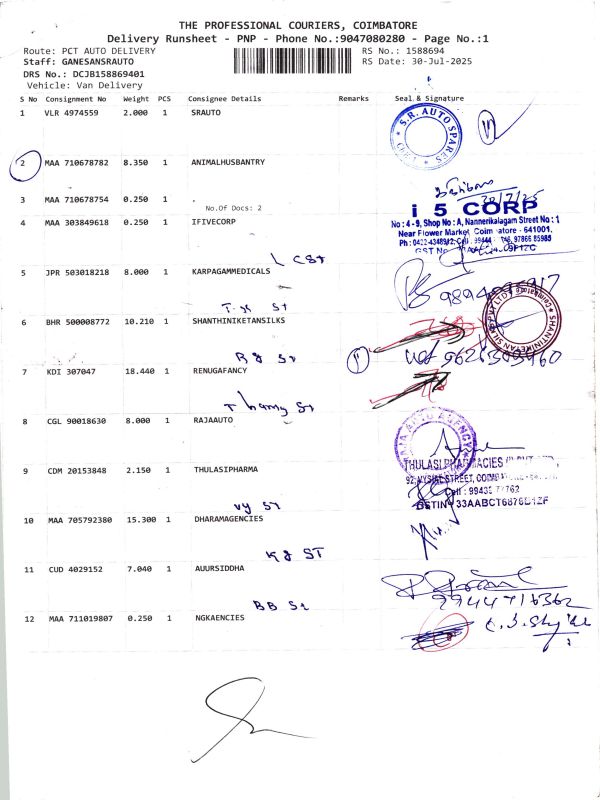 THE PROFESSIONAL COURIERS, COIMBATORE
Delivery Runsheet - PNP - Phone No.:9047080280 - Page No.:1
Route: PCT AUTO DELIVERY
RS No.: 1588694
Staff: GANESANSRAUTO
RS Date: 30-Jul-2025
DRS No.: DCJB158869401
Vehicle: Van Delivery
S No Consignment No Weight PCS Consignee Details Remarks Seal & Signature
1 VLR 4974559 2.000 1 SRAUTO
S.R. AUTO SPARES
2 MAA 710678782 8.350 1 ANIMALHUSBANTRY
3 MAA 710678754 0.250 1 .
No.Of Docs: 2
30/7/25
i 5 CORP
No : 4-9, Shop No : A, Nannerikalagam Street No : 1
Near Flower Market, Coimbatore - 641001.
4 MAA 303849618 0.250 1 IFIVECORP
L C St
5 JPR 503018218 8.000 1 KARPAGAMMEDICALS
St
6 BHR 500008772 10.210 1 SHANTHINIKETANSILKS
R J St
7 KDI 307047 18.440 1 RENUGAFANCY
St
8 CGL 90018630 8.000 1 RAJAAUTO
RAJA AUTO AGENCY
9 CDM 20153848 2.150 1 THULASIPHARMA
GSTIN : 33AABCT6876D1ZF
vy ST
10 MAA 705792380 15.300 1 DHARAMAGENCIES
KJ ST
11 CUD 4029152 7.040 1 AUURSIDDHA
9944716362
BB St
12 MAA 711019807 0.250 1 NGKAENCIES